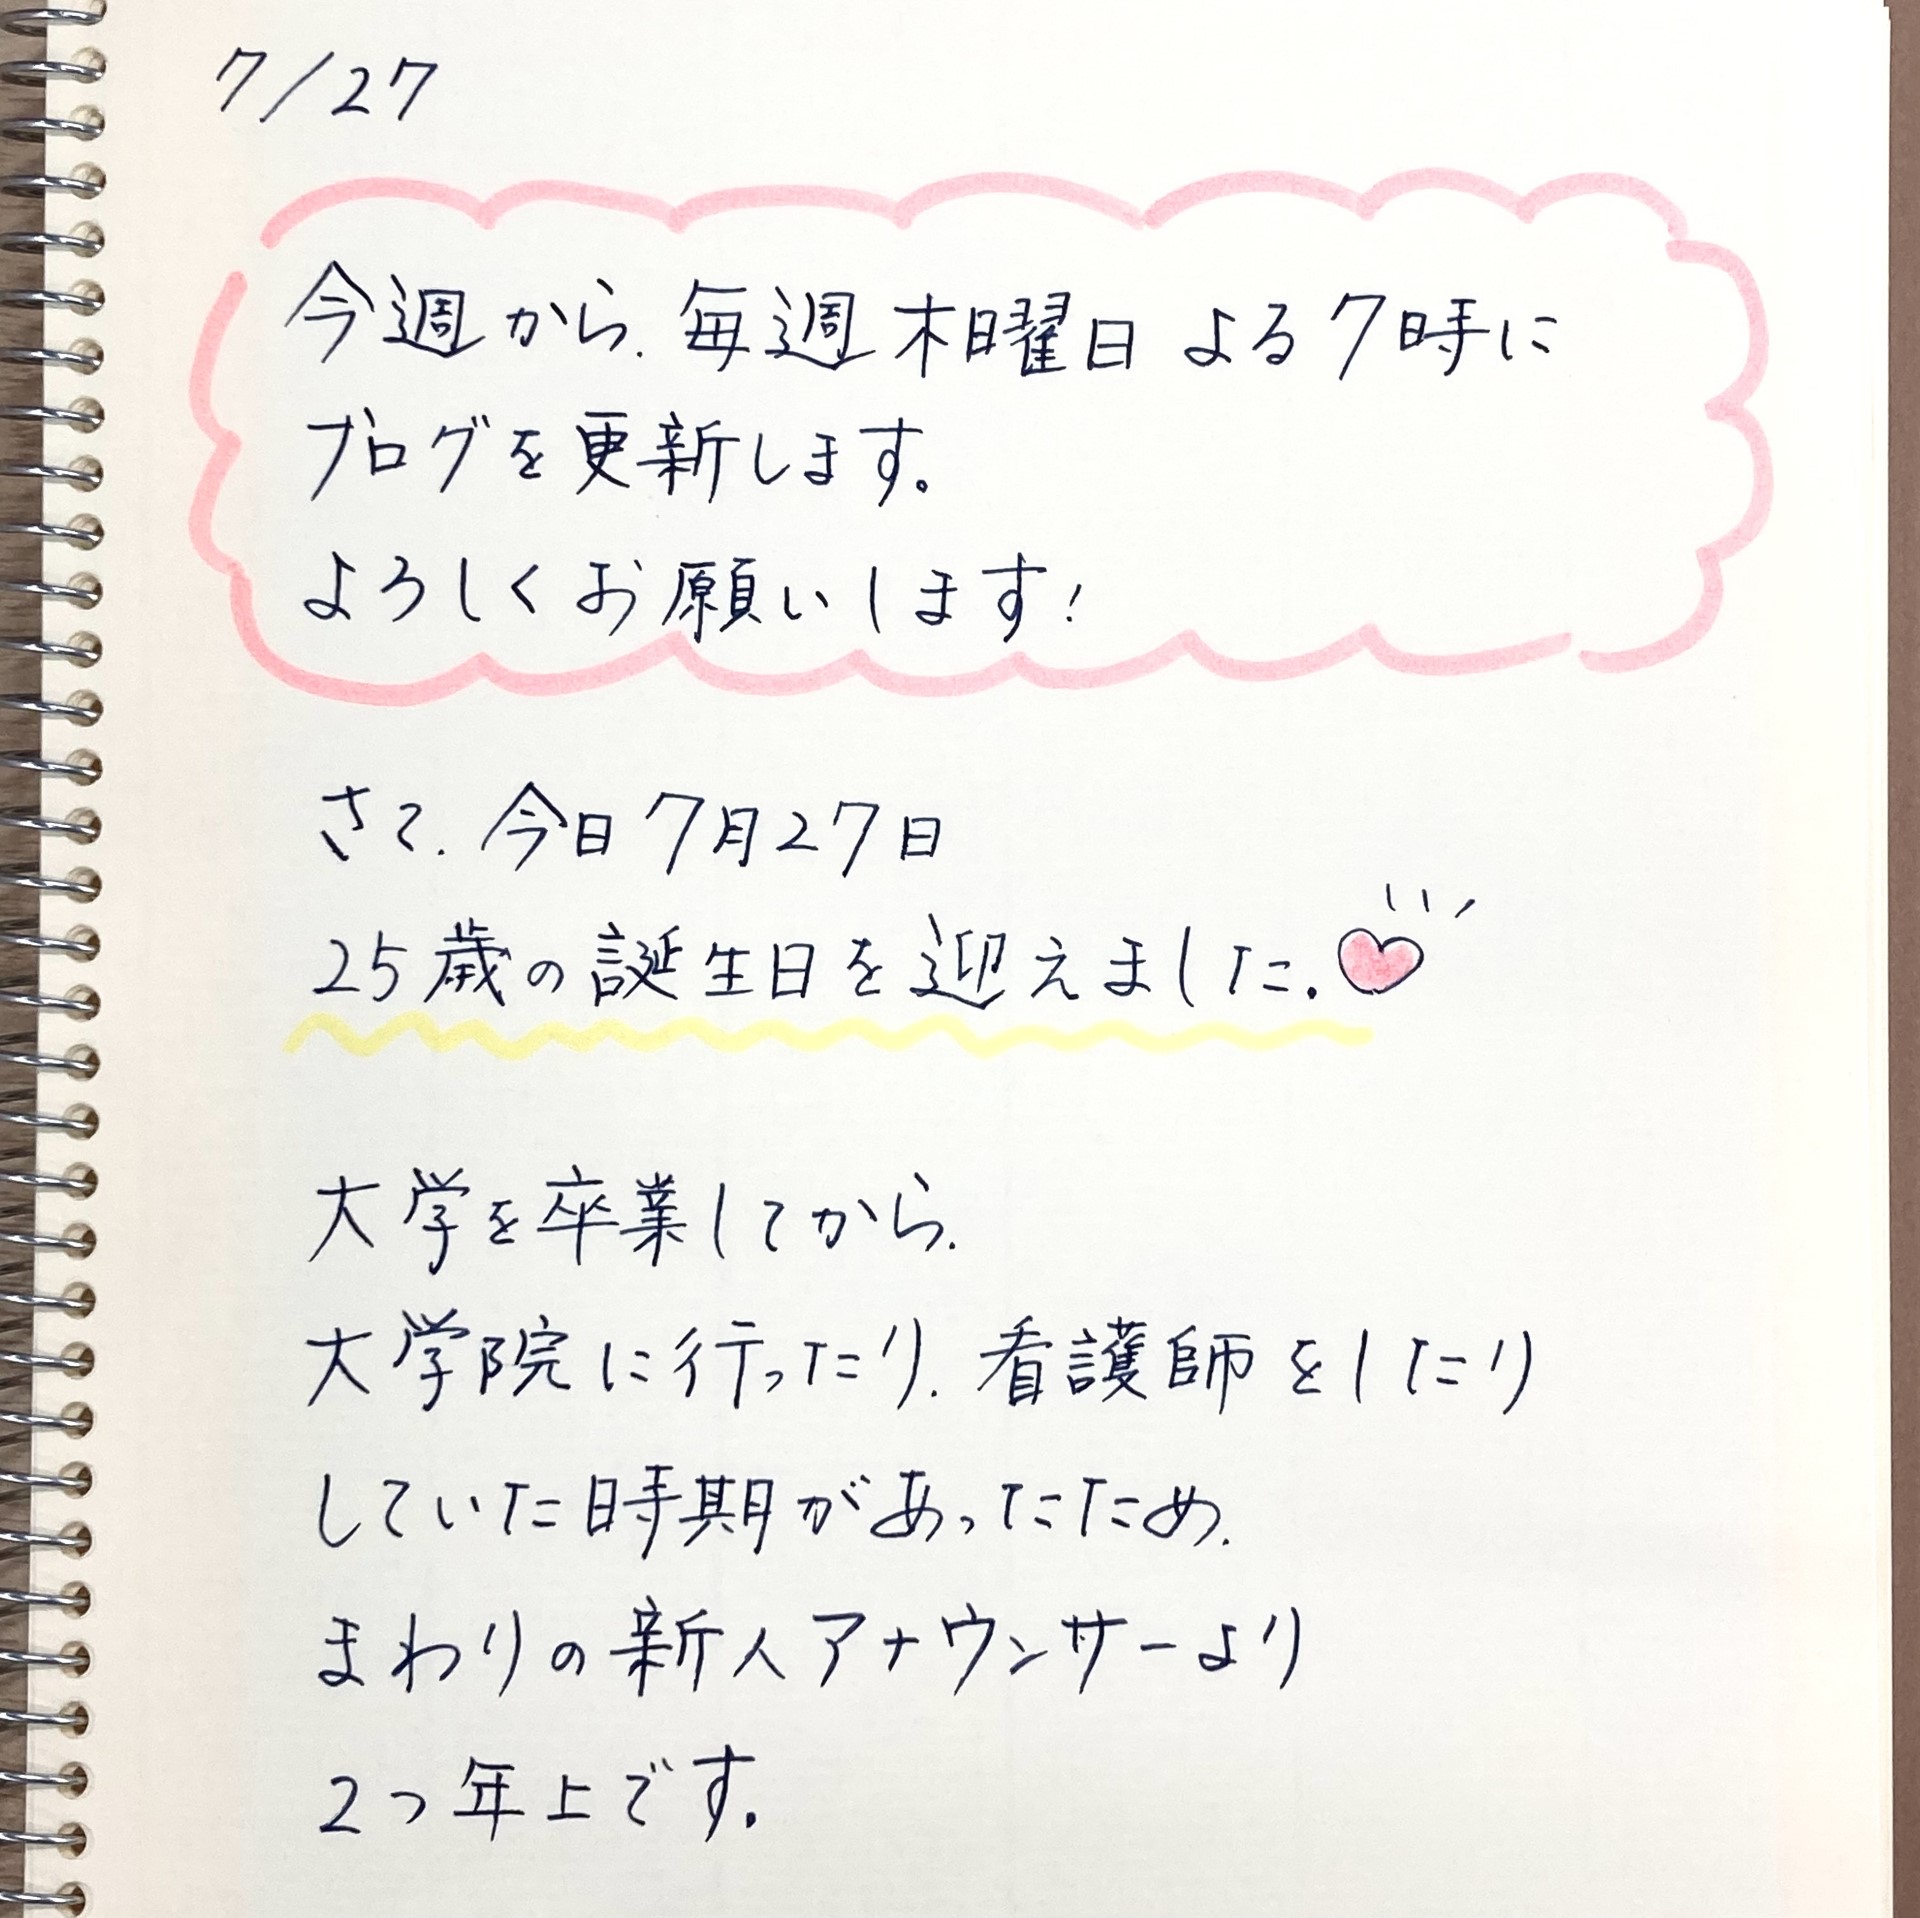 7/27
今週から、毎週木曜日よる7時に
ブログを更新します。
よろしくお願いします!
さて、今日7月27日
25歳の誕生日を迎えました。
大学を卒業してから、
大学院に行ったり、看護師をしたり
していた時期があったため、
まわりの新人アナウンサーより
2つ年上です。